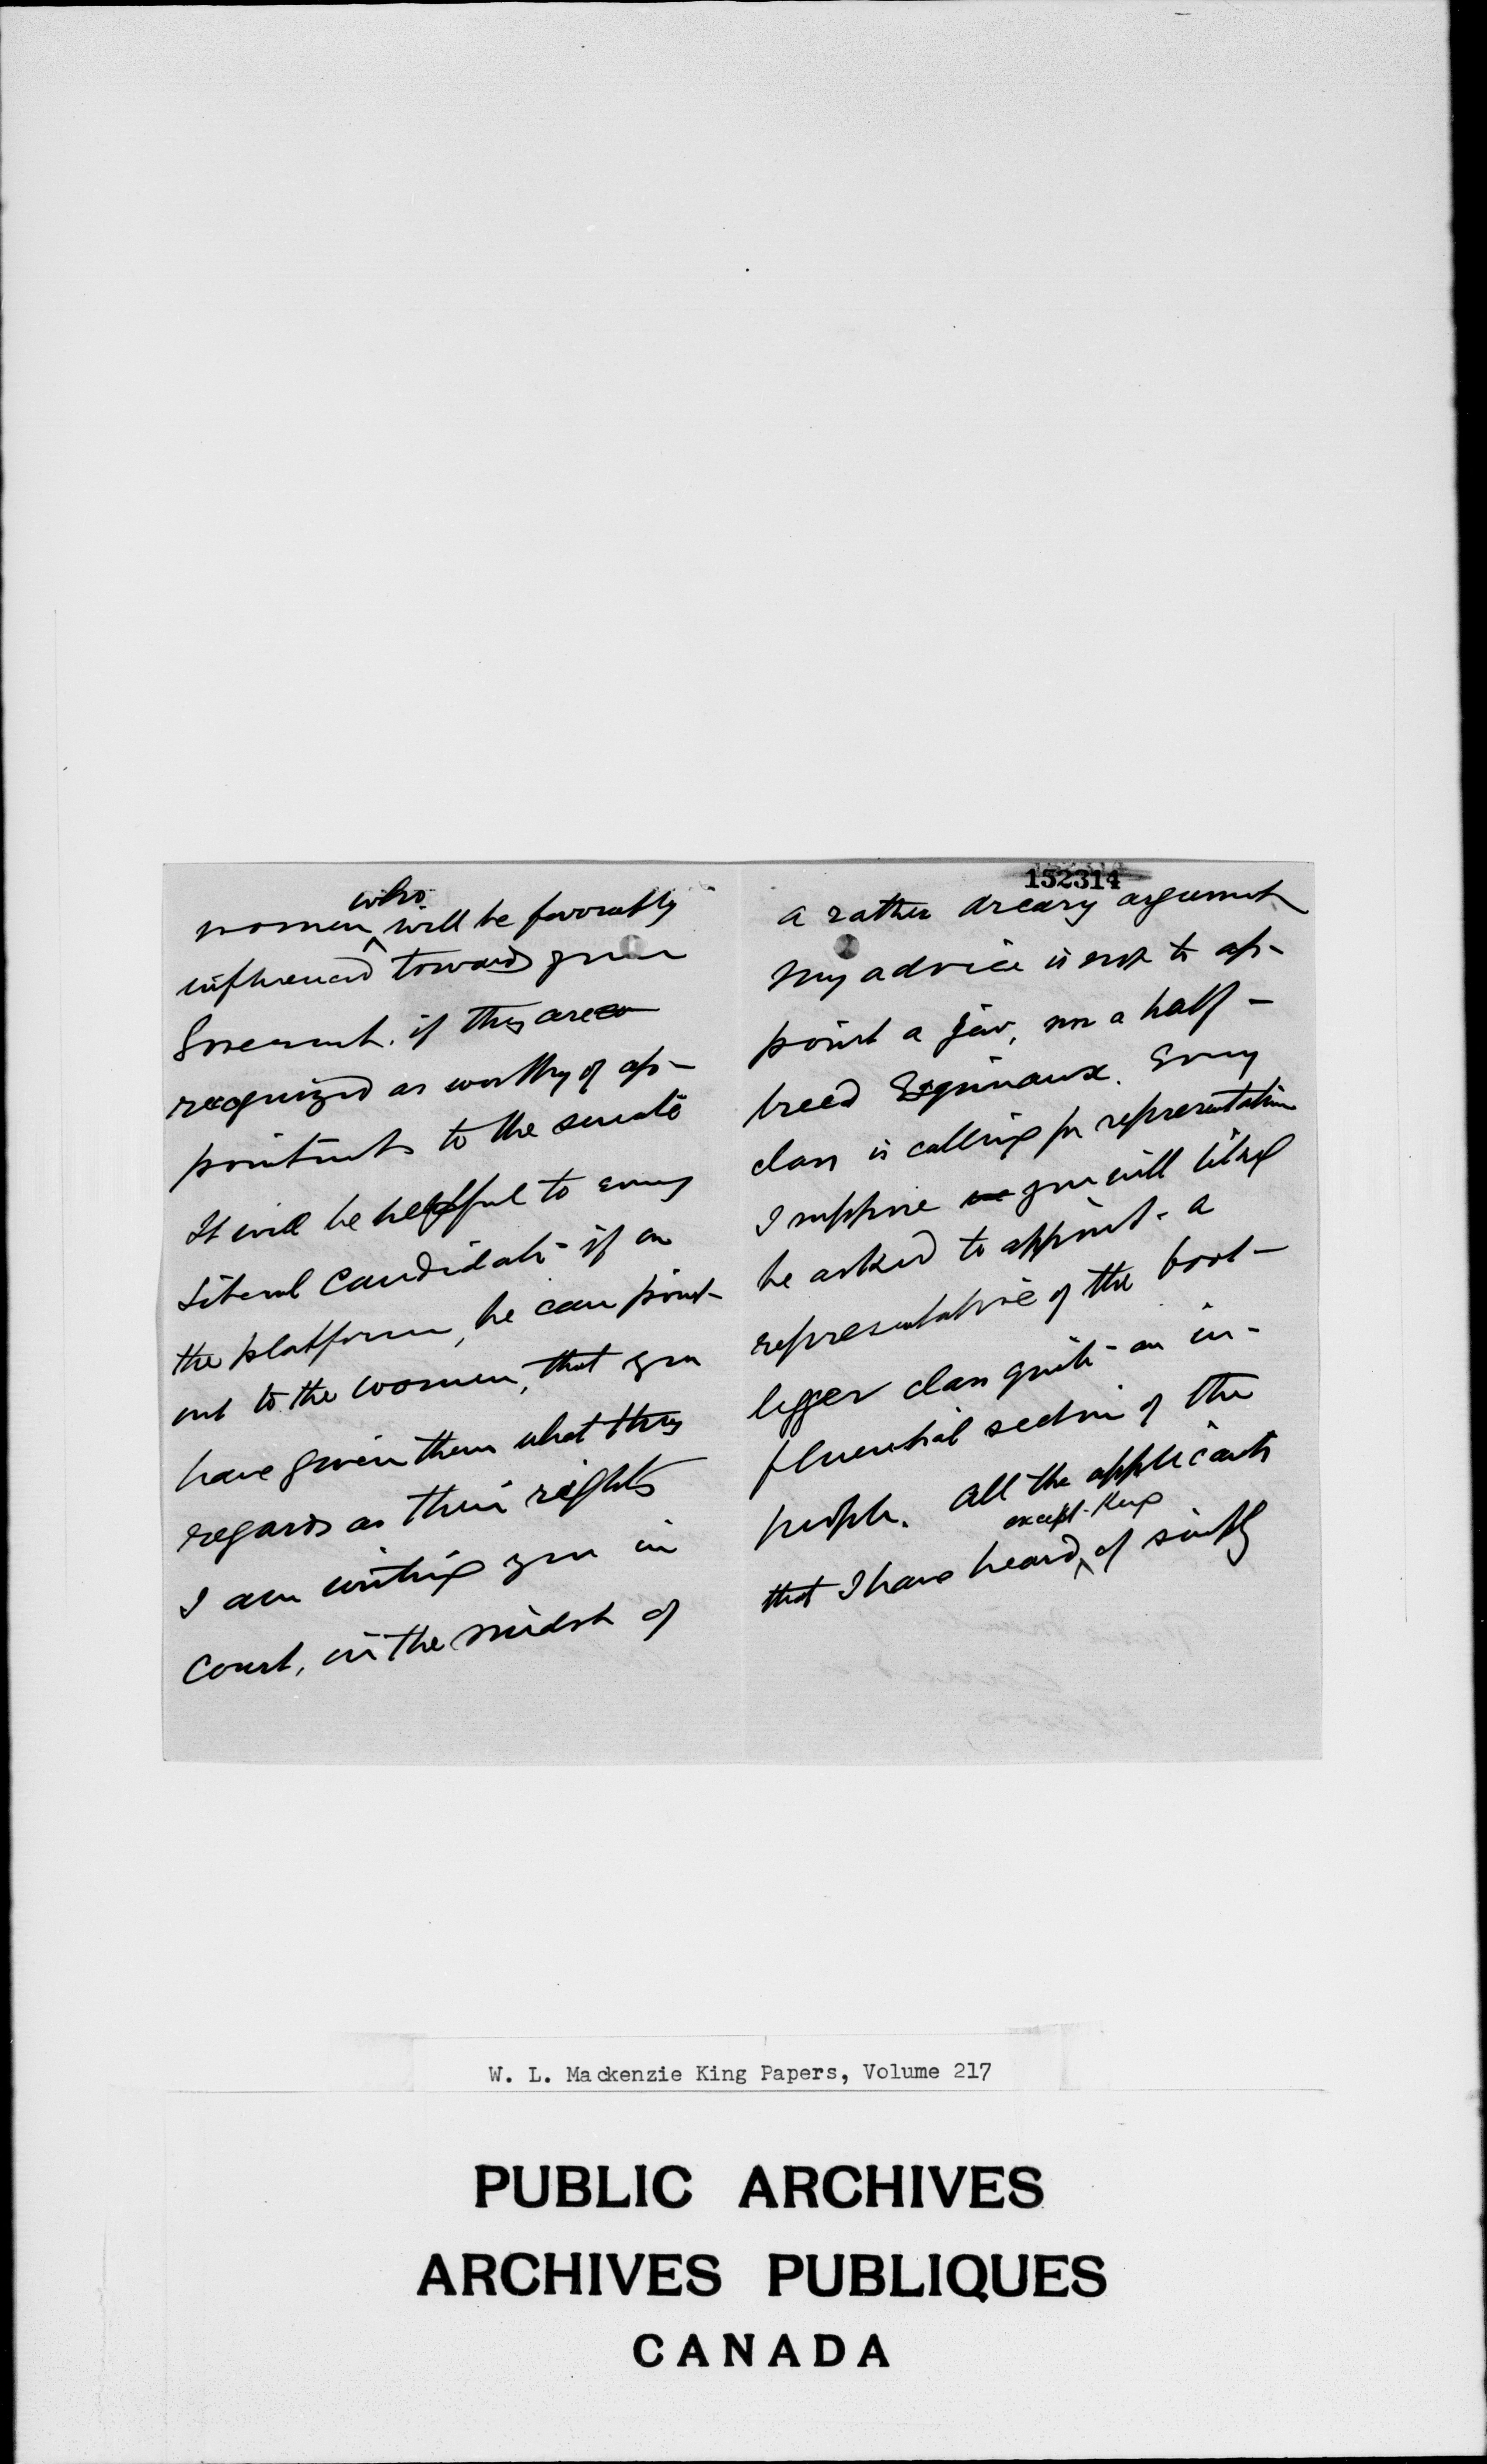 who
women ^ will be favorably
influenced towards your
Government. if they are so
recognized as worthy of ap-
pointments to the senate
It will be helpful to every
Liberal Candidate if on
the platform, he can point
out to the women, that you
have given them what they
regard as their rights
I am writing you in
Court, in the midst of
152314
a rather dreary argument
My advice is not to ap-
point a Jew, nor a half-
breed Esquimaux. Every
class is calling for representation
I suppose you will likely
be asked to appoint a
representative of the boot-
legger class quite an in-
fluential section of the
people. All the applicants
except King
that I have heard ^ of simply
W. L. Mackenzie King Papers, Volume 217
PUBLIC ARCHIVES
ARCHIVES PUBLIQUES
CANADA